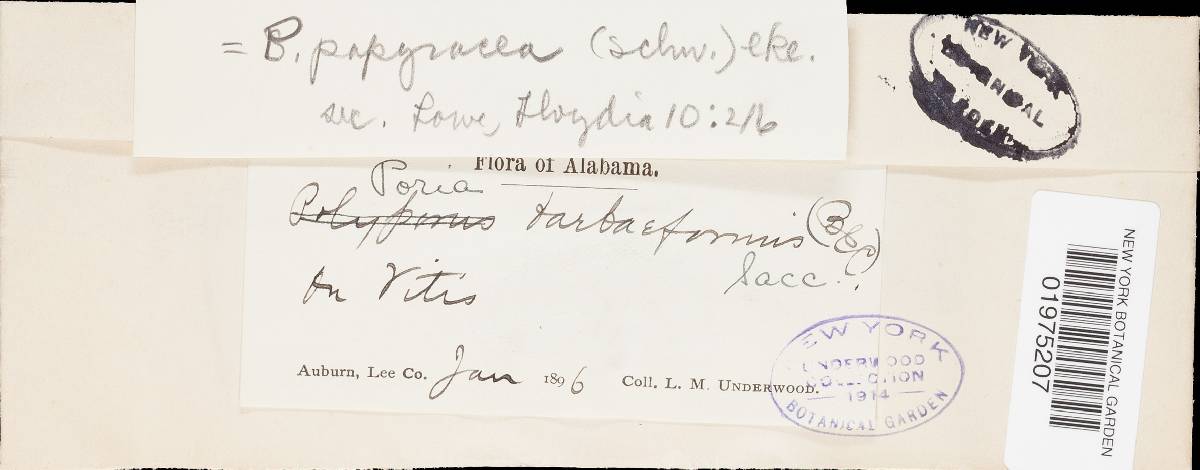 = B. papyracea (Schw.) Cke.
sec. Lowe, Lloydia 10:216
Flora of Alabama.
Poria
Polyporus tarbaeformis (B&C)
Sacc.
On Vitis
Auburn, Lee Co. Jan 1896 Coll. L. M. UNDERWOOD.
NEW YORK
BOTANICAL
GARDEN.
NEW YORK
UNDERWOOD
COLLECTION
1914
BOTANICAL GARDEN
NEW YORK BOTANICAL GARDEN
01975207